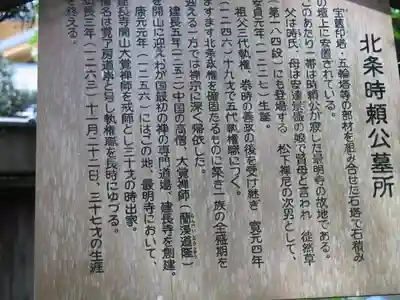 北条時頼公墓所
宝篋印塔・五輪塔等の部材を組み合せた石塔で石積み
の壇上に安置されている。
このあたり一帯は時頼公が寂した最明寺の故地である。
父は時氏、母は安達景盛の娘で賢母と言われ、徒然草
「第一八四段」にも登場する 松下禅尼の次男として、
安貞元年(一二二七)生誕。
祖父三代執権、泰時の善政の後を受け継ぎ、寛元四年
(一二四六)十九才で五代執権職につく。
ますます北条政権を確固たるものに築き一族の全盛期を
迎える一方では禅宗に深く帰依した。
建長五年(一二五三)中国の高僧、大覚禅師(蘭渓道隆)
を開山に迎え、わが国最初の禅の専門道場、建長寺を創建。
康元元年(一二五六)にはこの地、最明寺において、
建長寺開山大覚禅師を戒師とし三十才の時出家。
覚了房道崇と号し執権職を長時にゆづる。
長三年(一二六三)十一月二十二日、三十七才の生涯
終える。